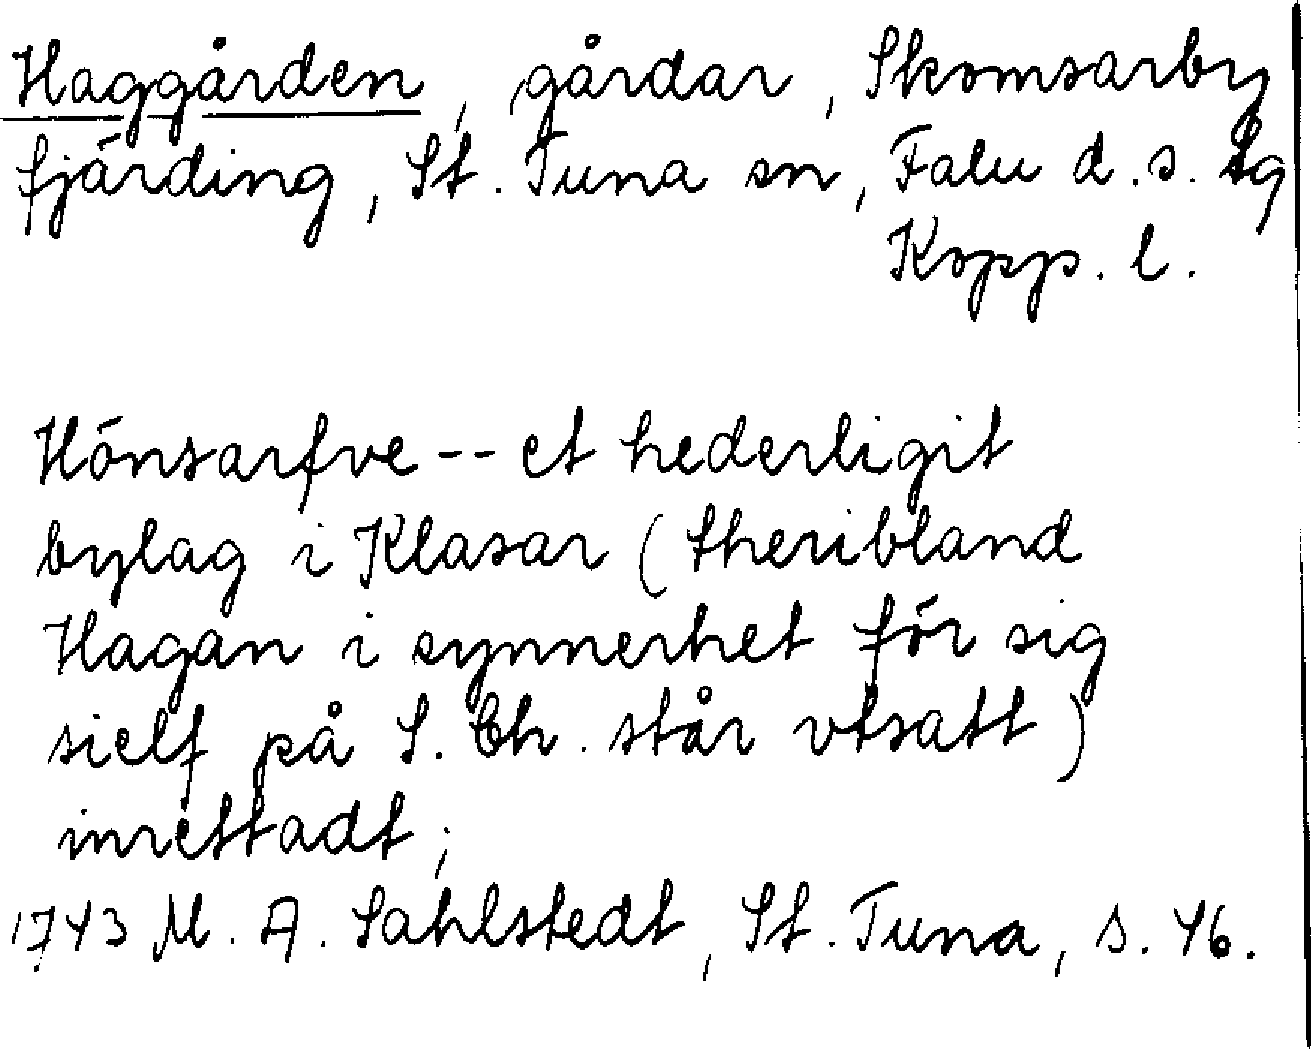 Haggården, gårdar, Skomsarby
fjärding, St. Tuna sn, Falu d.s. lg
Kopp. l.
Hönsarfve -- et hederligit
bylag i Klasar (theribland
Hagan i synnerhet för sig
sielf på S. Ch. står vtsatt)
inrettadt;
1743 M. A. Sahlstedt, St. Tuna, s. 46.